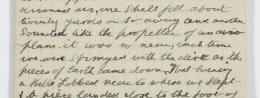 one shell fell about
twenty yards or so away and another
Sounded like the propeller of an aero
plane, it was so near, each time
we were sprayed with the dirt as the
pieces of earth came down.
a shell lobbed near to where we slept
a piece landed close to the foot of